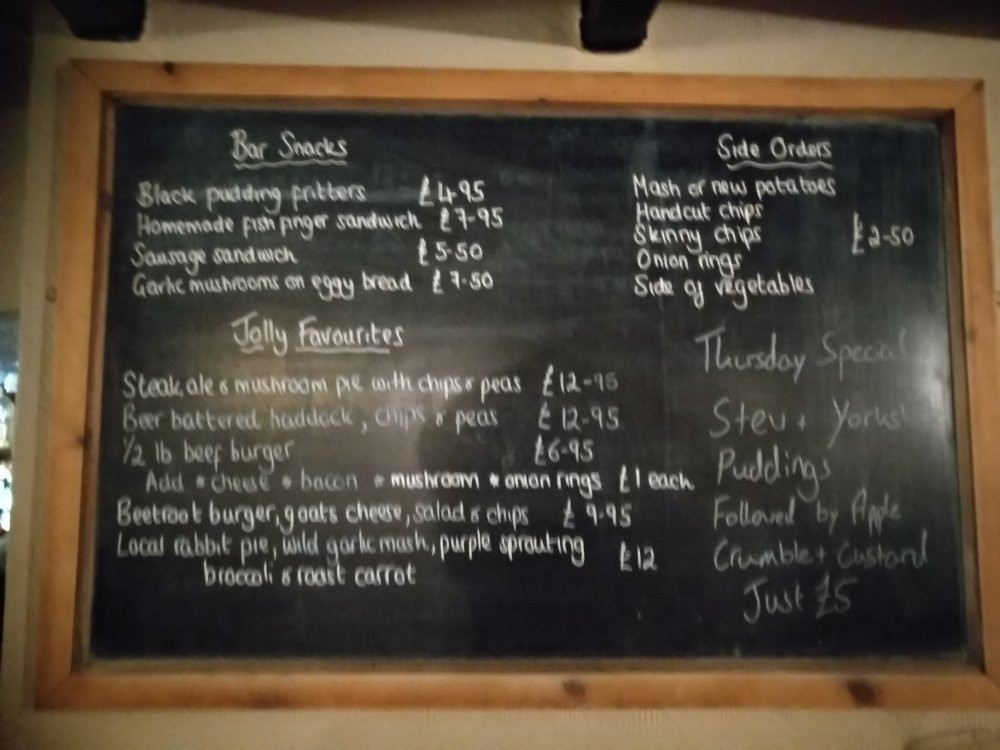 Bar Snacks
Black pudding fritters £4.95
Homemade fish finger sandwich £7-95
Sausage sandwich £5-50
Garlic mushrooms on eggy bread £7-50
Jolly Favourites
Steak, ale & mushroom pie with chips & peas £12-95
Beer battered haddock, chips & peas £12-95
1/2 lb beef burger £6-95
Add * cheese * bacon * mushroom * onion rings £1 each
Beetroot burger, goats cheese, salad & chips £9-95
Local rabbit pie, wild garlic mash, purple sprouting £12
broccoli & roast carrot
Side Orders
Mash or new potatoes
Handcut chips
Skinny chips £2-50
Onion rings
Side of vegetables
Thursday Special
Stew +
Puddings
Followed by Apple
Crumble + Custard
Just £5